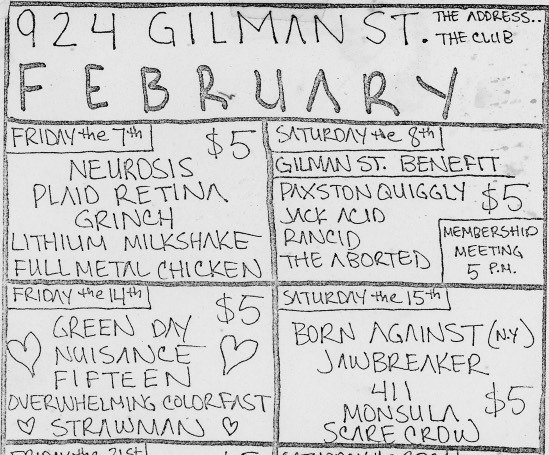 924 GILMAN ST. THE ADDRESS..
THE CLUB
FEBRUARY
FRIDAY the 7th $5
NEUROSIS
PLAID RETINA
GRINCH
LITHIUM MILKSHAKE
FULL METAL CHICKEN
SATURDAY the 8th
GILMAN ST. BENEFIT
PAXSTON QUIGGLY $5
JACK ACID
RANCID
THE ABORTED
MEMBERSHIP
MEETING
5 P.M.
FRIDAY the 14th $5
GREEN DAY
NUISANCE
FIFTEEN
OVERWHELMING COLORFAST
STRAWMAN
SATURDAY the 15th
BORN AGAINST (N.Y)
JAWBREAKER
411 $5
MONSULA
SCARE CROW
FRIDAY the 21st